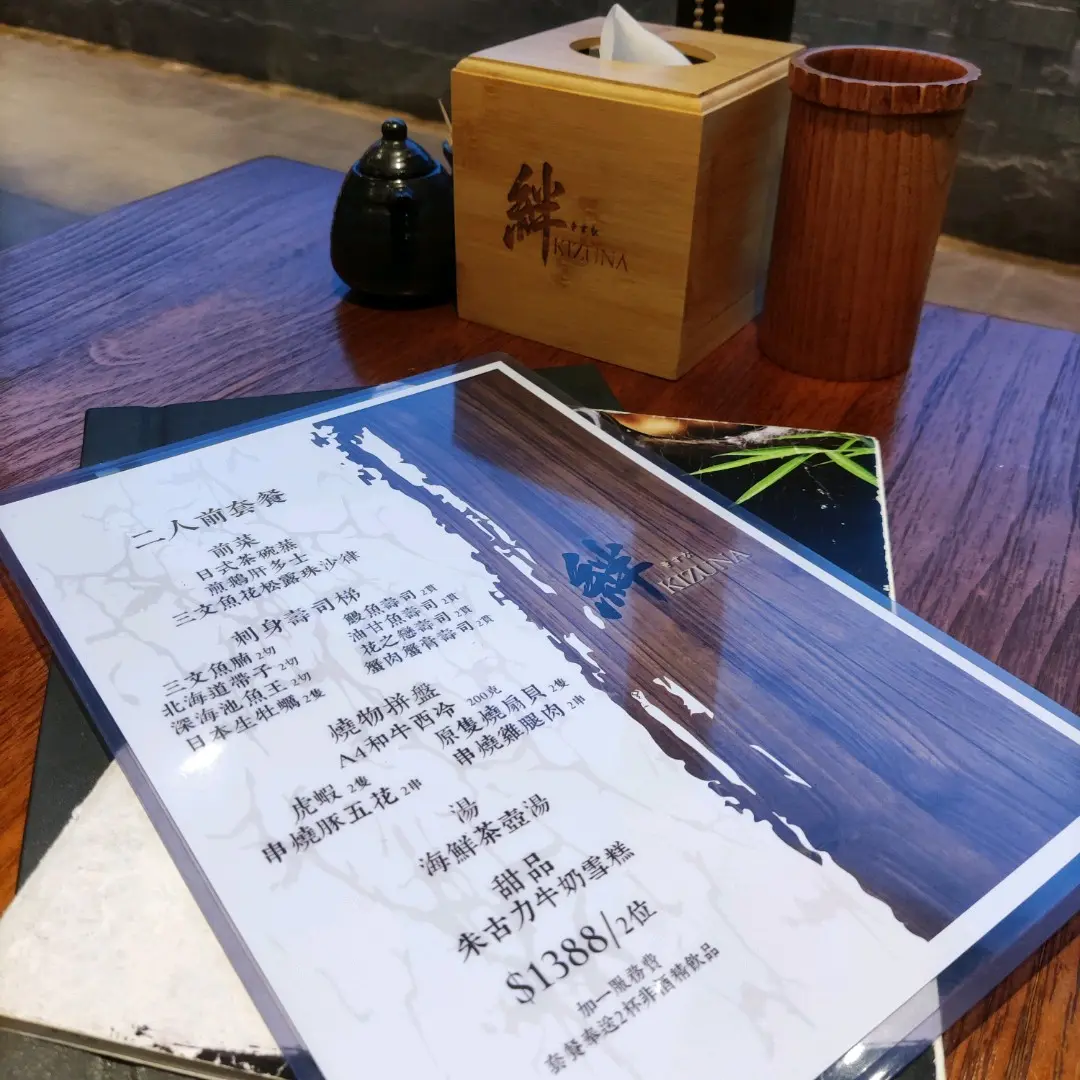 絆
KIZUNA
絆
きずな
KIZUNA
二人前套餐
前菜
日式茶碗蒸
煎鵝肝多士
三文魚花松露珠沙律
刺身壽司梯
三文魚腩 2切
北海道帶子 2切
深海池魚王 2切
日本生牡蠣 2隻
鰻魚壽司 2貫
油甘魚壽司 2貫
花之戀壽司 2貫
蟹肉蟹膏壽司 2貫
燒物拼盤
A4和牛西冷 200克
原隻燒扇貝 2隻
串燒雞腿肉 2串
虎蝦 2隻
串燒豚五花 2串
湯
海鮮茶壺湯
甜品
朱古力牛奶雪糕
$1388/2位
加一服務費
套餐奉送2杯非酒精飲品